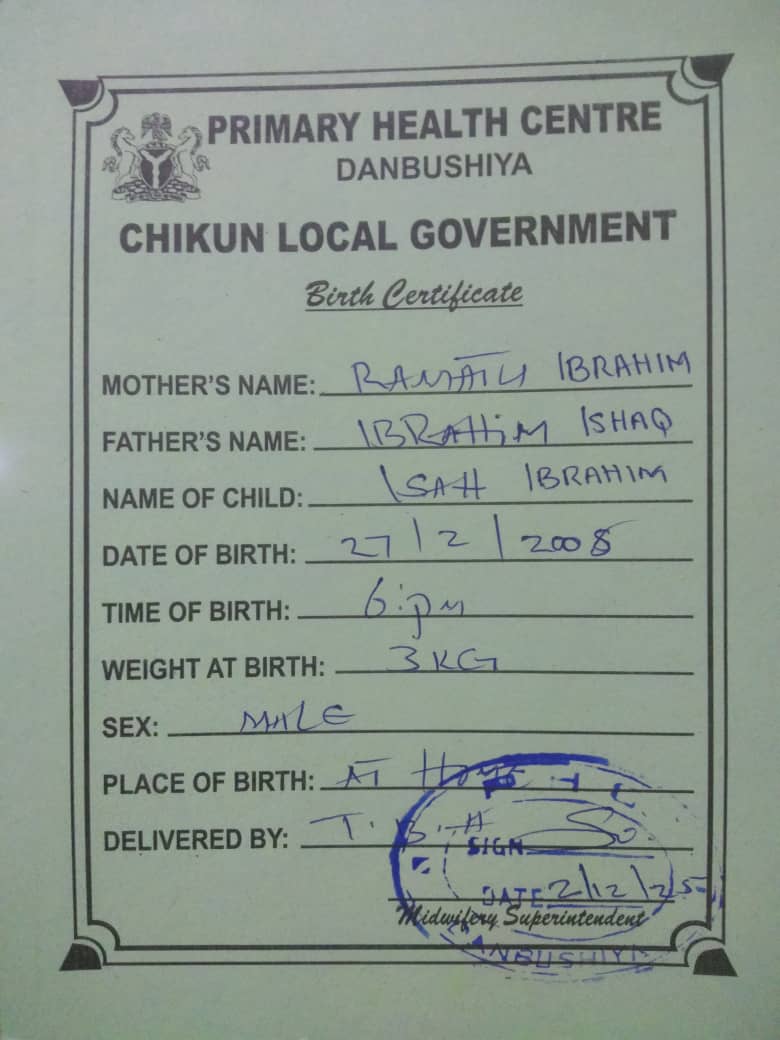 PRIMARY HEALTH CENTRE
DANBUSHIYA
CHIKUN LOCAL GOVERNMENT
Birth Certificate
MOTHER'S NAME: RAMATU IBRAHIM
FATHER'S NAME: IBRAHIM ISHAQ
NAME OF CHILD: ISAH IBRAHIM
DATE OF BIRTH: 27/2/2008
TIME OF BIRTH: 6:pm
WEIGHT AT BIRTH: 3KG
SEX: MALE
PLACE OF BIRTH: AT HOME
DELIVERED BY: T.B.A
SIGN
DATE 2/12/25
Midwifery Superintendent
DANBUSHIYA